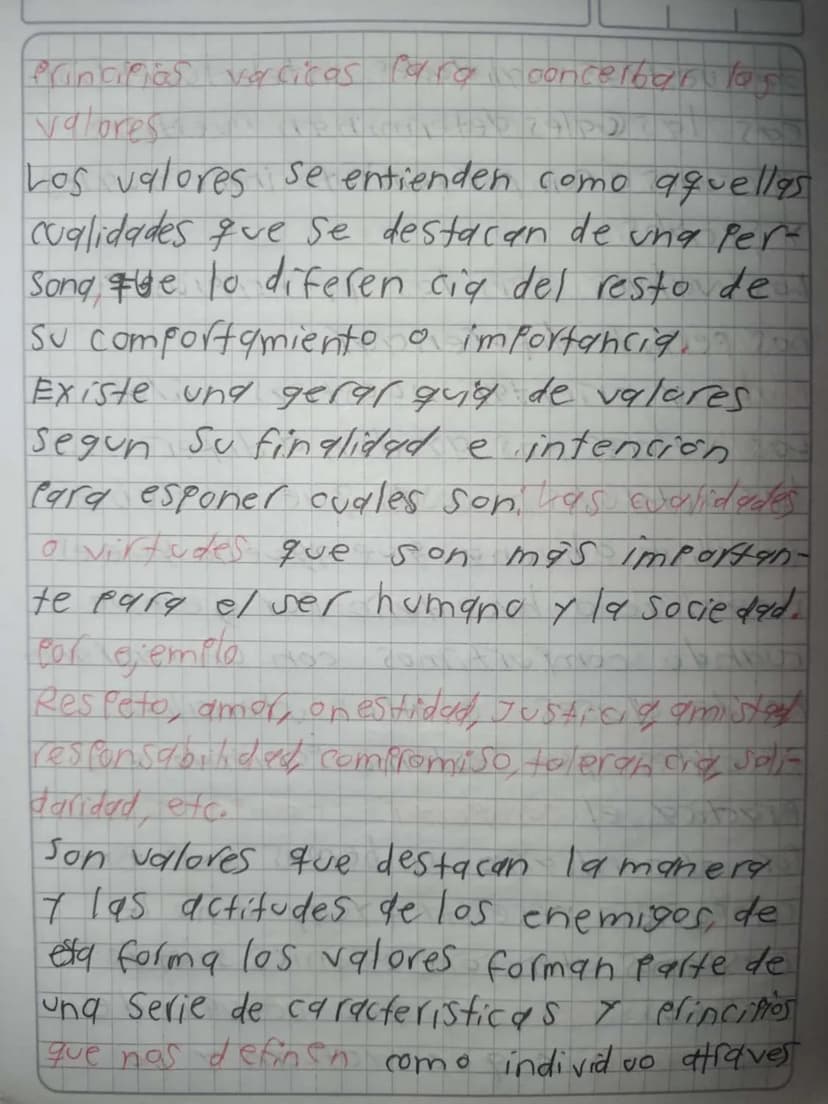 principios vacicos para concerbar los
valores
Los valores se entienden como aquellas
cualidades que se destacan de una per-
sona, que lo diferen cia del resto de
su comportamiento o importancia.
Existe una gerar quia de valores
segun su finalidad e intención
para esponer cuales son. Las cualidades
o virtudes que son mas importan-
te para el ser humano y la sociedad.
por ejemplo
Respeto, amor, onestidad, Justicia, amistad
responsabilidad, compromiso, tolerancia, soli-
daridad, etc.
Son valores que destacan la manera
y las actitudes de los enemigos, de
esta forma los valores forman parte de
una serie de caracteristicas y principios
que nos definen como individuo atraves